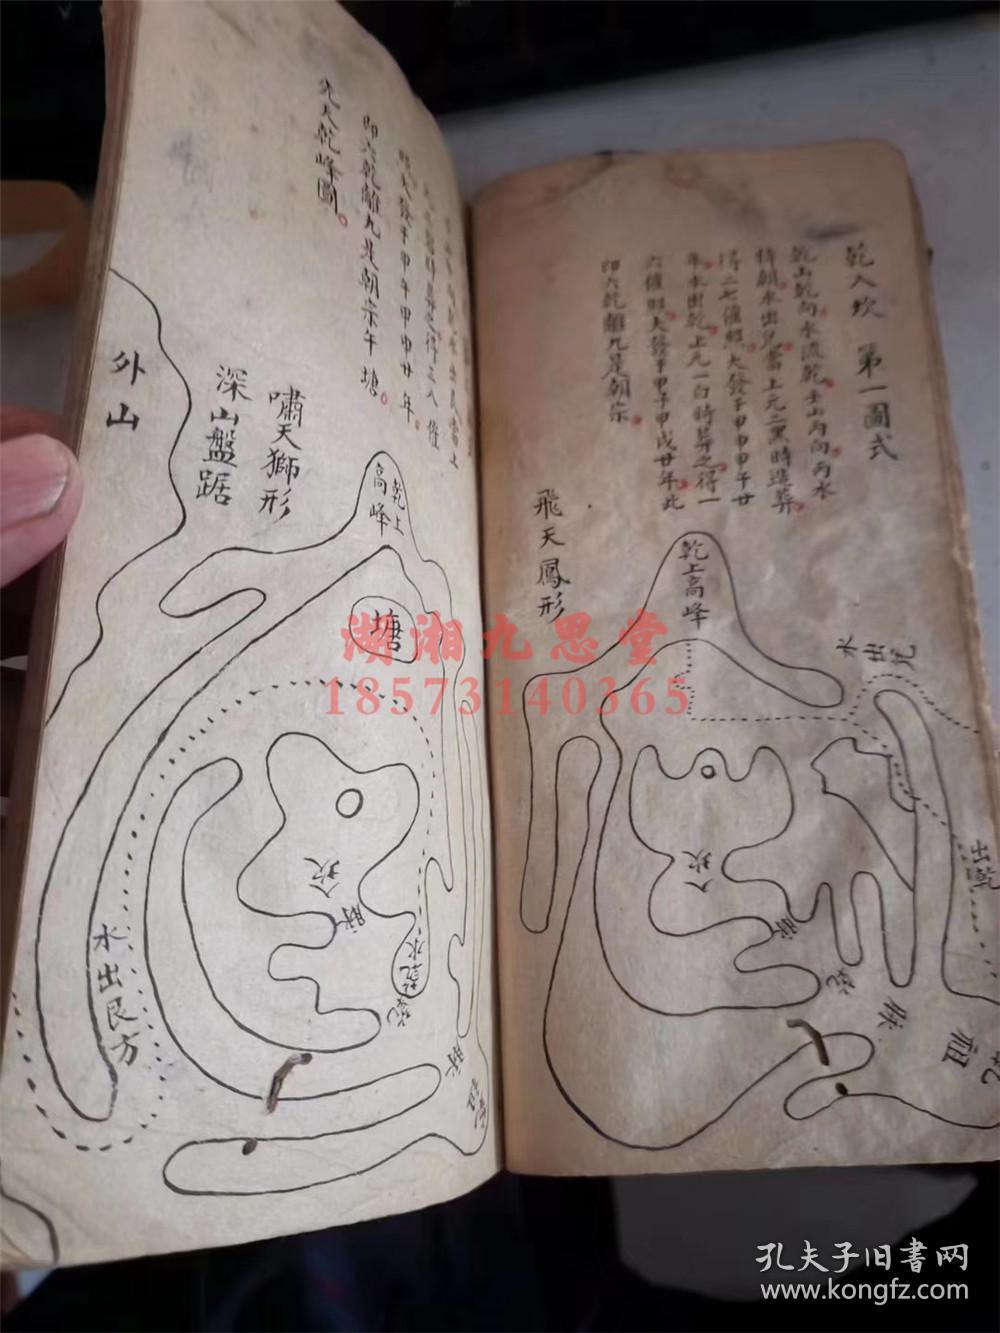 乾入坎 第一圖式
乾山乾向水流乾壬山丙向丙水
特朝水出兌當上元二黑時進葬
得二七催照大發于甲申甲午廿
年水出乾上元一白時葬之得一
六催照大發于甲子甲戌廿年此
即六乾離九是朝宗
飛天鳳形
乾上高峰
水出兌
出乾
入坎
脉
乾
脉
祖
即六乾離九是朝宗午塘
先天乾峰圖
嘯天獅形
深山盤踞
外山
乾上
高峰
塘
入坎
脉
乾水
水出艮方
脉
祖
湖湘九思堂
18573140365
孔夫子旧書网
www.kongfz.com